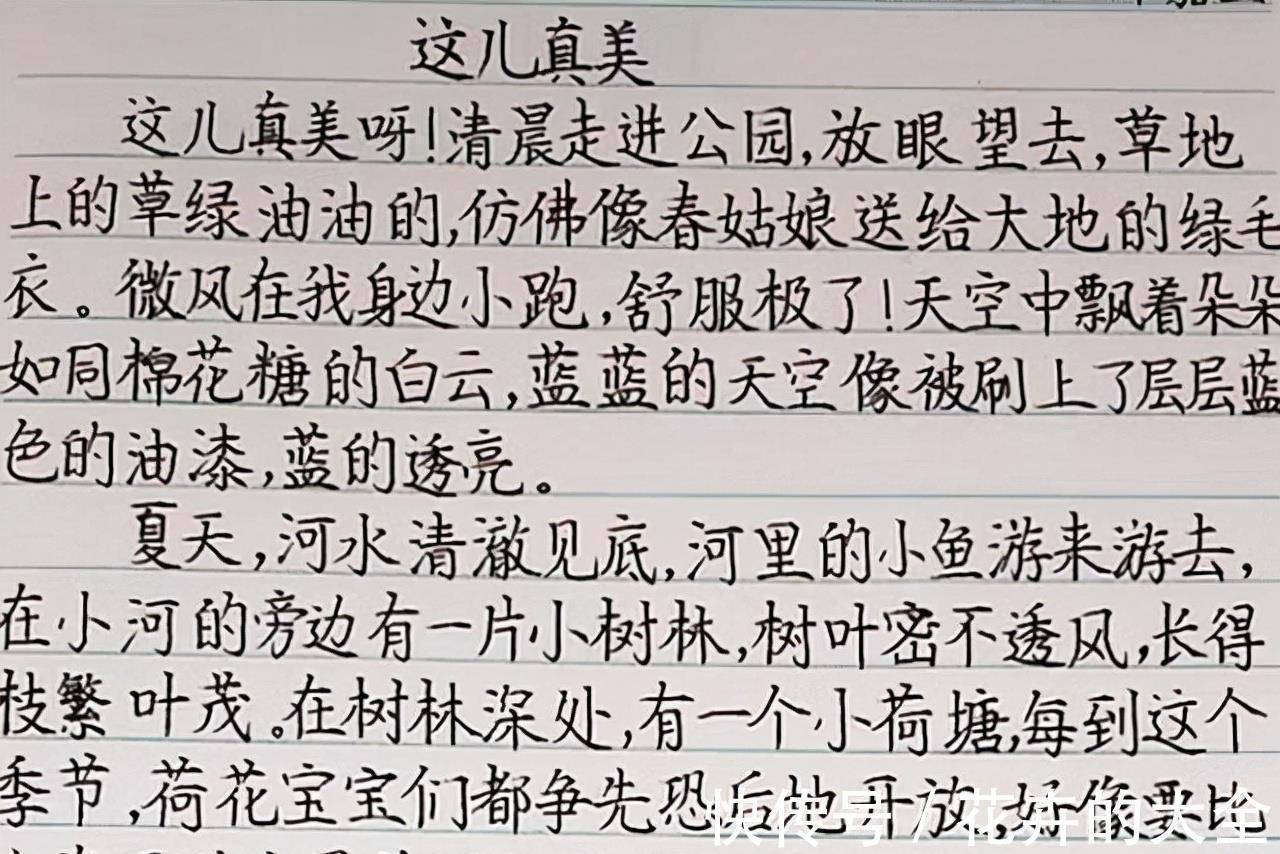 这儿真美
这儿真美呀!清晨走进公园,放眼望去,草地
上的草绿油油的,仿佛像春姑娘送给大地的绿毛
衣。微风在我身边小跑,舒服极了!天空中飘着朵朵
如同棉花糖的白云,蓝蓝的天空像被刷上了层层蓝
色的油漆,蓝的透亮。
夏天,河水清澈见底,河里的小鱼游来游去,
在小河的旁边有一片小树林,树叶密不透风,长得
枝繁叶茂。在树林深处,有一个小荷塘,每到这个
季节,荷花宝宝们都争先恐后地开放,好像要比
快传号/花卉的大全